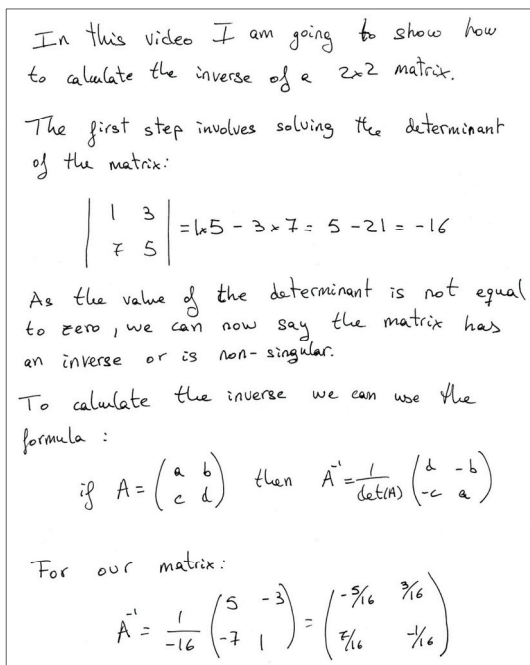 In this video I am going to show how
to calculate the inverse of a 2x2 matrix.
The first step involves solving the determinant
of the matrix:
| 1 3 |
| 7 5 | = 1x5 - 3x7 = 5 - 21 = -16
As the value of the determinant is not equal
to zero, we can now say the matrix has
an inverse or is non-singular.
To calculate the inverse we can use the
formula :
if A = (a b; c d) then A⁻¹ = 1/det(A) (d -b; -c a)
For our matrix:
A⁻¹ = 1/-16 (5 -3; -7 1) = (-5/16 3/16; 7/16 -1/16)